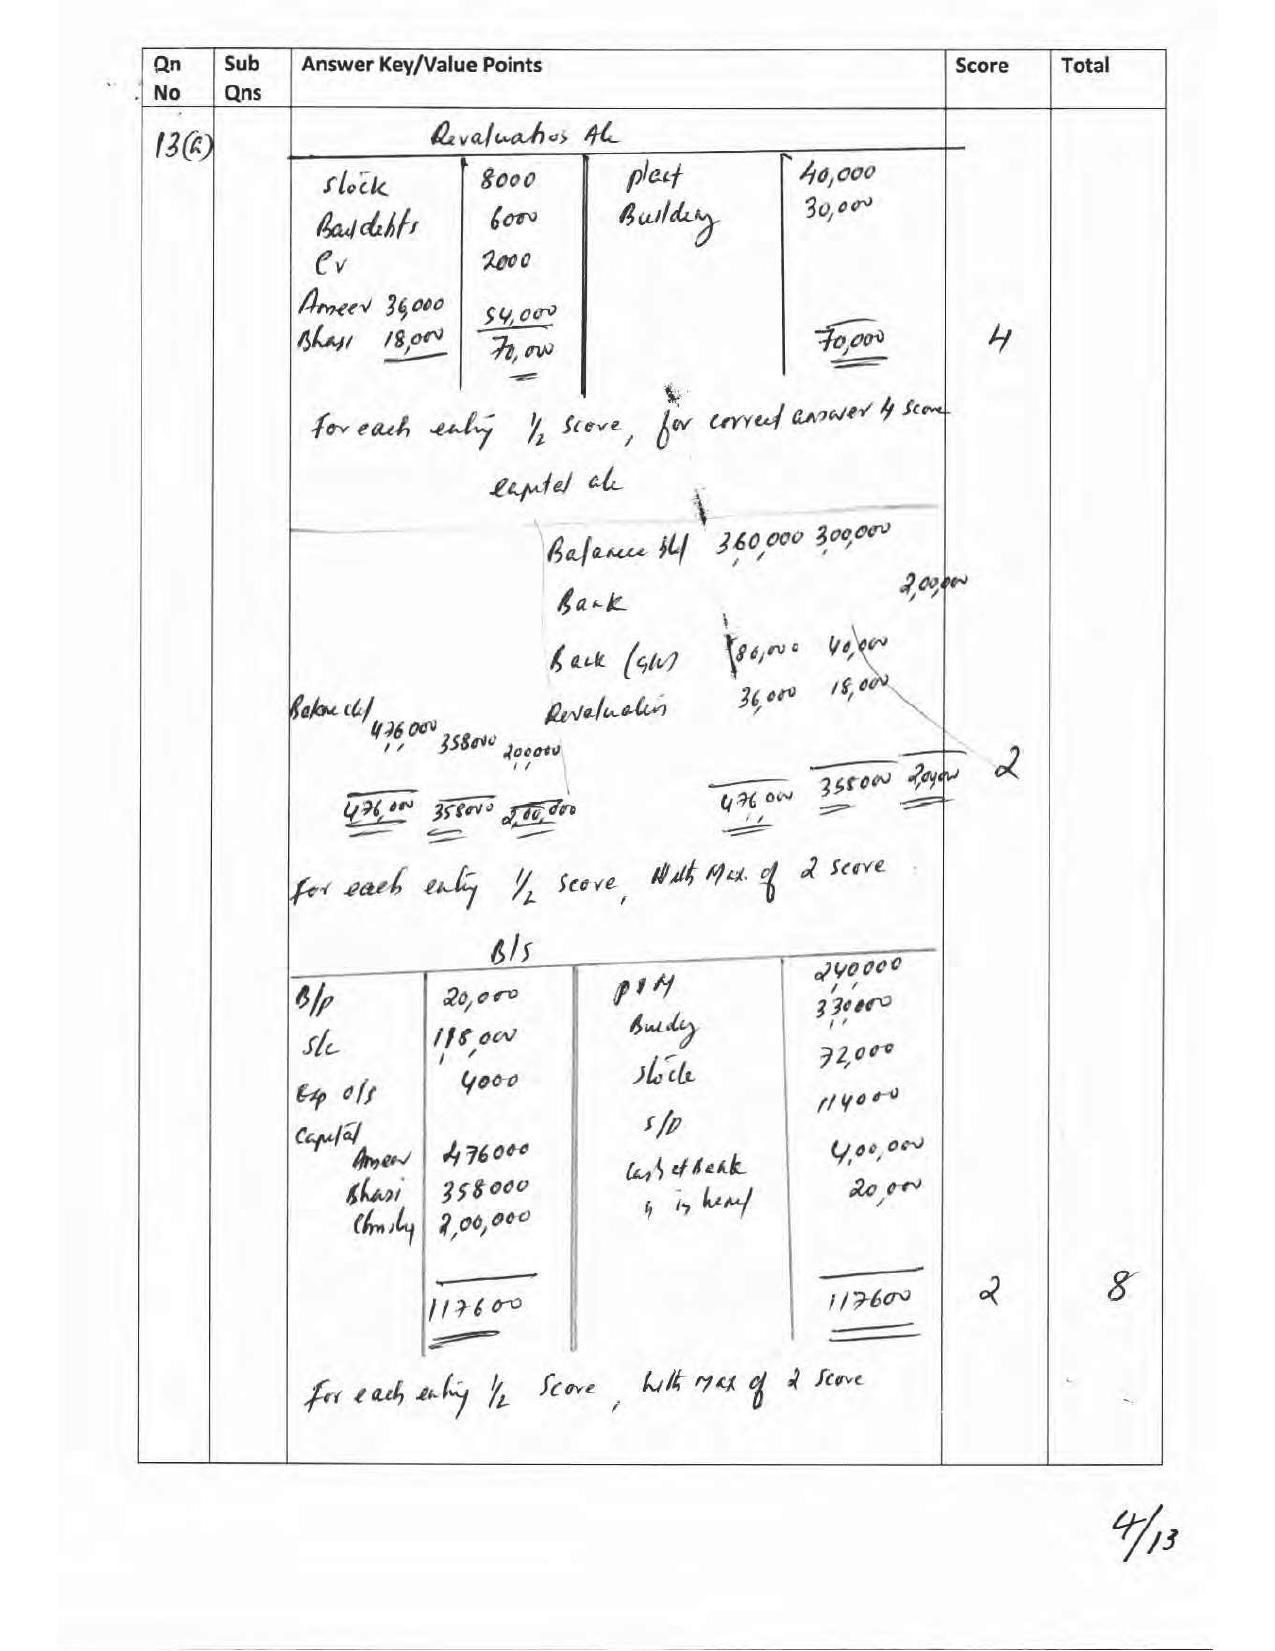 Qn No Sub Qns Answer Key/Value Points Score Total
13(a)
Revaluation A/c
Stock 8000 plant 40,000
Bad debts 6000 Building 30,000
Cr 2000
Ameer 36,000 54,000
Bhasi 18,000 70,000 70,000 4
For each entry 1/2 score, for correct answer 4 score
capital a/c
Balance b/d 360,000 300,000
Bank 2,00,000
Back (G/W) 80,000 40,000
Revaluation 36,000 18,000
Balance c/d 476000 358000 200000
2
476,000 358000 2,00,000 476000 358000 2,00,000
For each entry 1/2 score, With Max. of 2 score
B/S
B/p 20,000 P & M 240000
S/c 118,000 Building 330000
Exp o/s 4000 Stock 72,000
Capital S/D 114000
Ameer 476000 Cash at Bank 4,00,000
Bhasi 358000 " in hand 20,000
Christy 2,00,000
117600 117600 2 8
For each entry 1/2 Score, with Max of 2 score
4/13